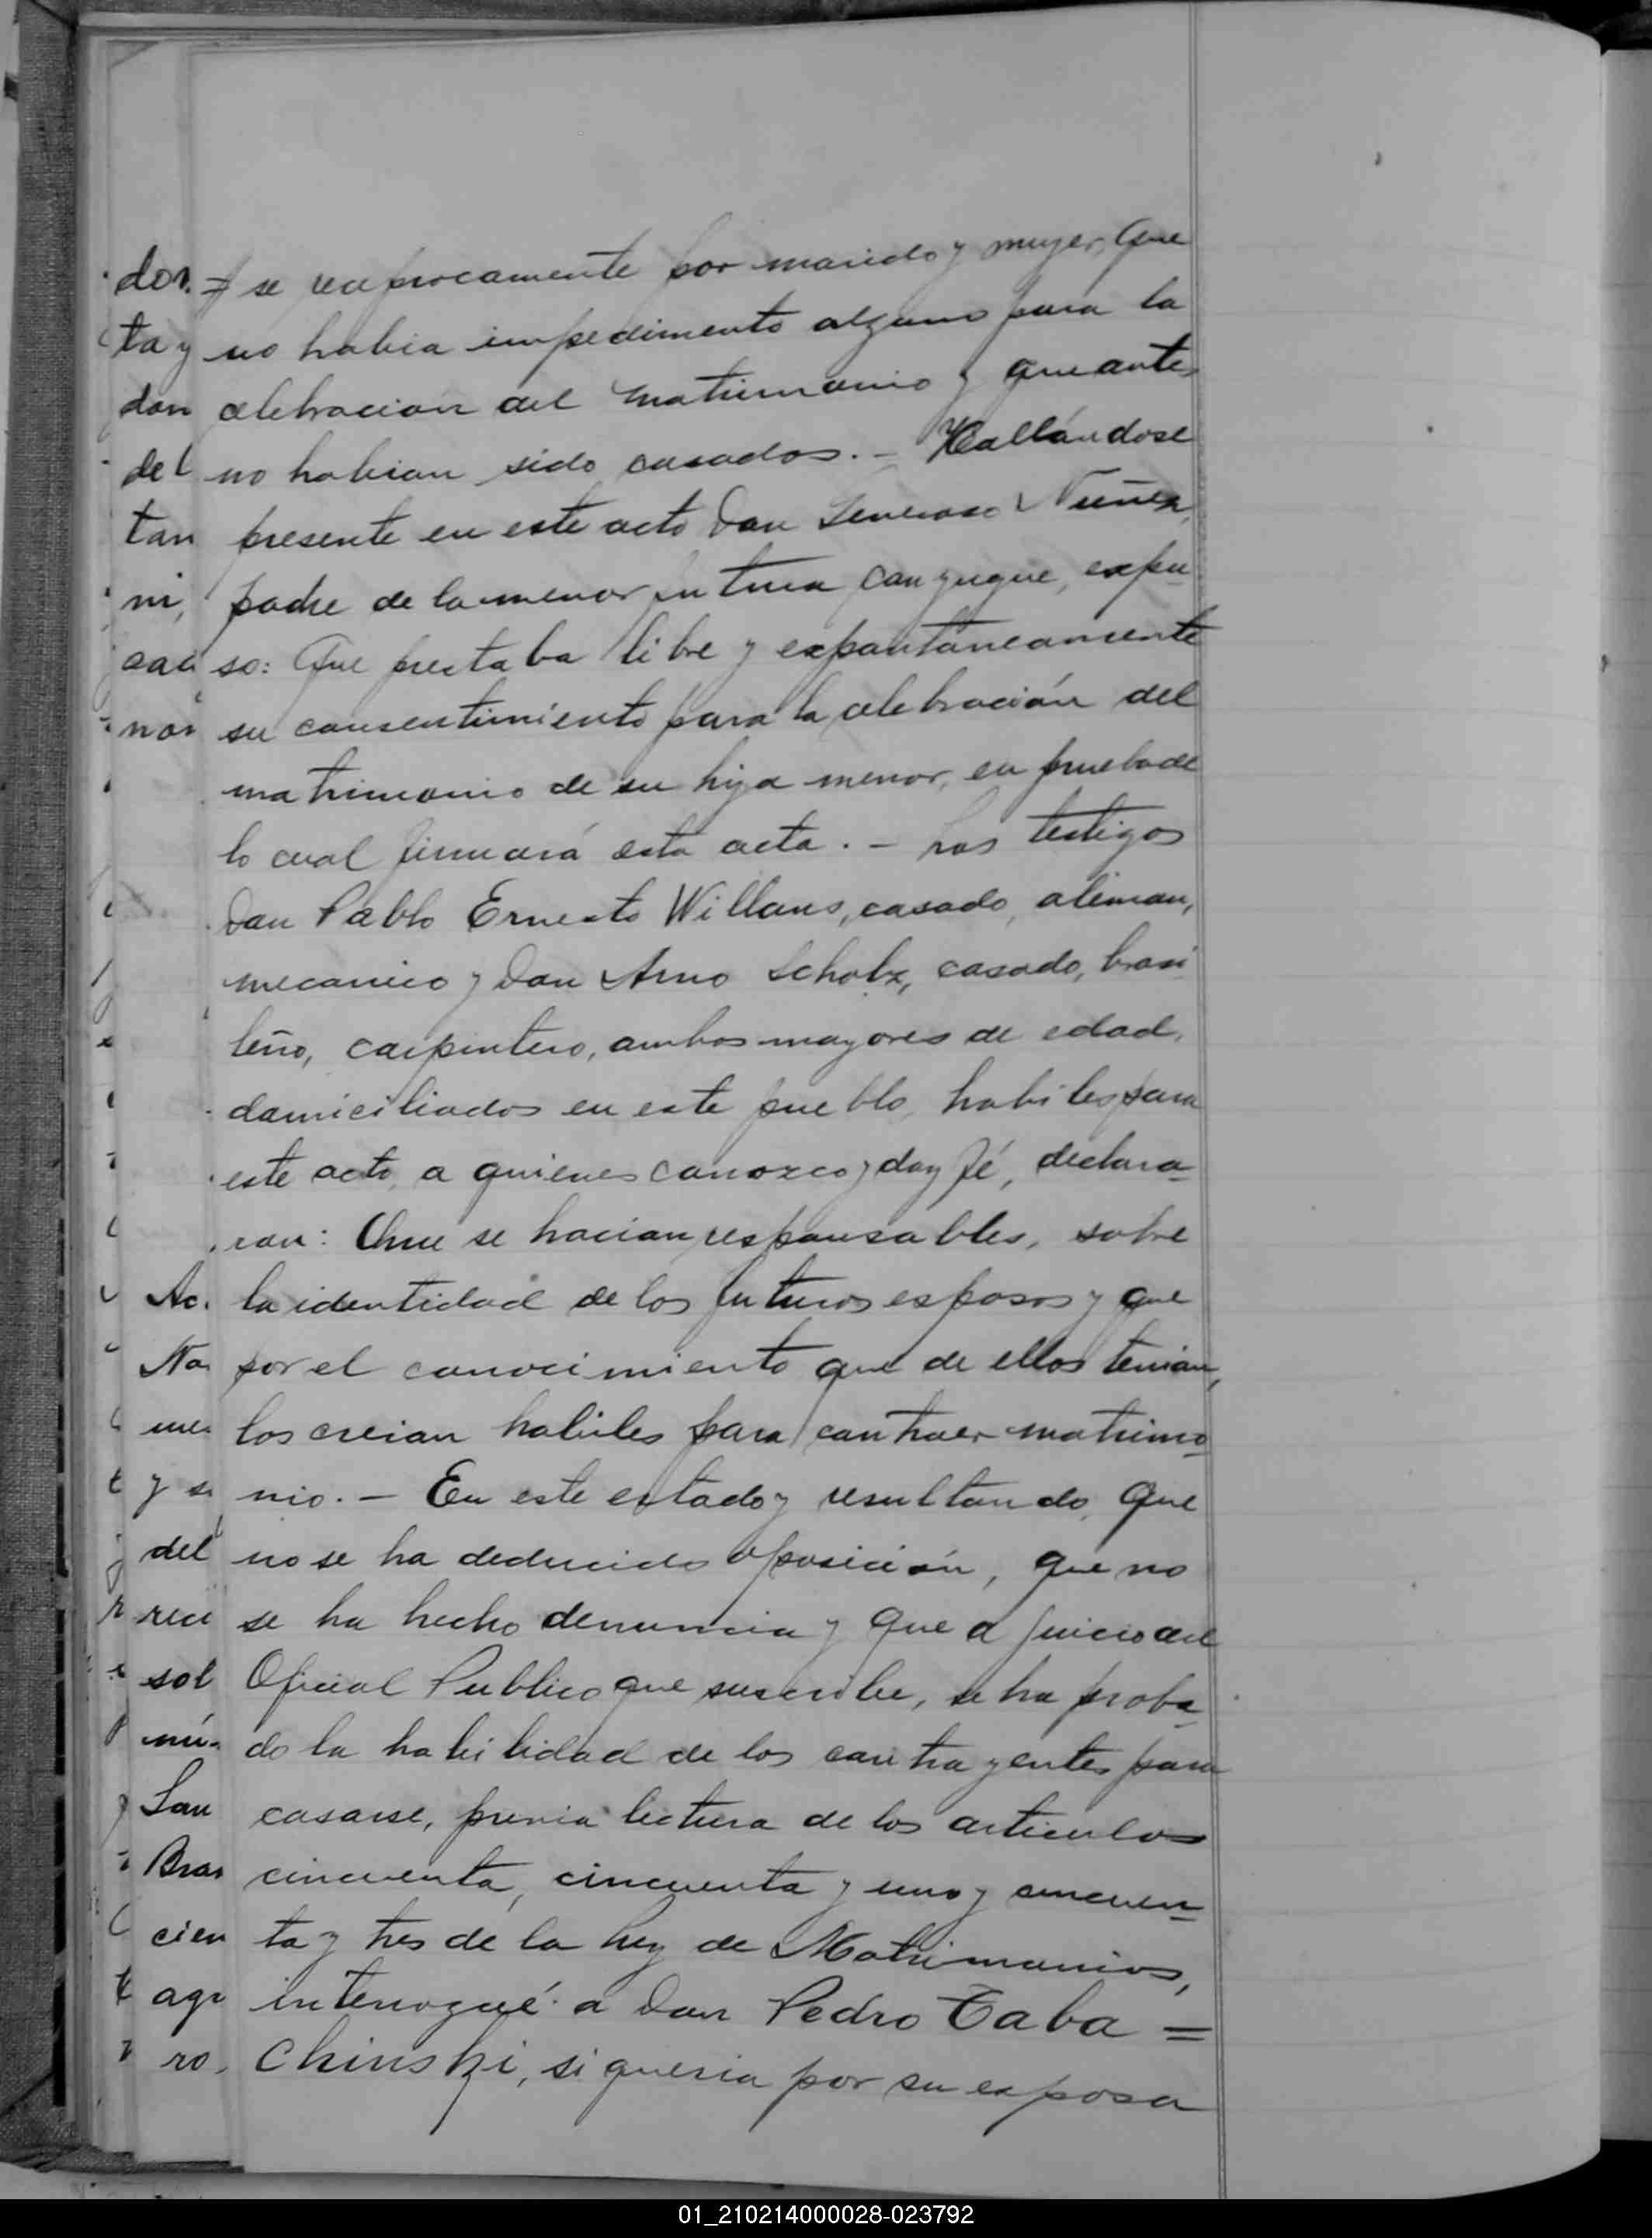 dos. = se reciprocamente por marido y mujer, Que
ta y no habia impedimento alguno para la
don celebracion del matrimonio y que antes
del no habian sido casados. - Hallándose
tan presente en este acto Don Generoso Nuñez,
ni, padre de la menor futura conyugue, expu
so: Que prestaba libre y expontáneamente
nor su consentimiento para la celebración del
matrimonio de su hija menor, en prueba de
lo cual firmará esta acta. - Los testigos
Don Pablo Ernesto Willans, casado, aleman,
mecanico y Don Arno Scholz, casado, brasi
leño, carpintero, ambos mayores de edad,
domiciliados en este pueblo, habiles para
este acto, a quienes conozco y doy fé, declara-
ron: Que se hacian responsables, sobre
Ac. la identidad de los futuros esposos y que
No por el conocimiento que de ellos tenian,
los creian habiles para contraer matrimo-
y se nio. - En este estado y resultando, Que
del no se ha deducido oposición, que no
reci se ha hecho denuncia y Que a juicio del
sol Oficial Publico que suscribe, se ha proba-
mú- do la habilidad de los contrayentes para
San casarse, previa lectura de los articulos
Bras cincuenta, cincuenta y uno y cincuen-
cien ta y tres de la Ley de Matrimonios,
agr interrogué a Don Pedro Taba =
ro, Chinski, si queria por su esposa
01_210214000028-023792